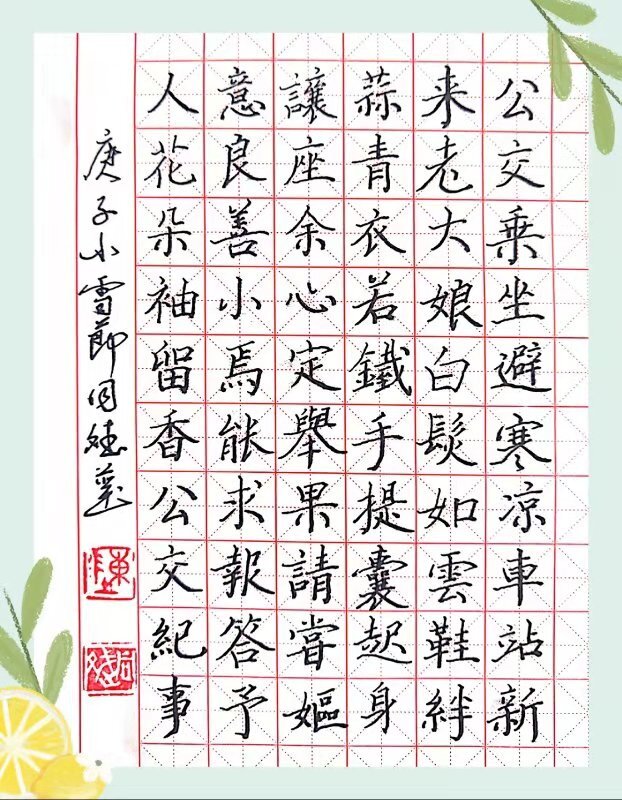 公交乘坐避寒凉車站新
来老大娘白髮如雲鞋絆
蒜青衣若鐵手提囊起身
讓座余心定舉果請嘗嫗
意良善小焉能求報答予
人花朵袖留香公交紀事
庚子小雪節